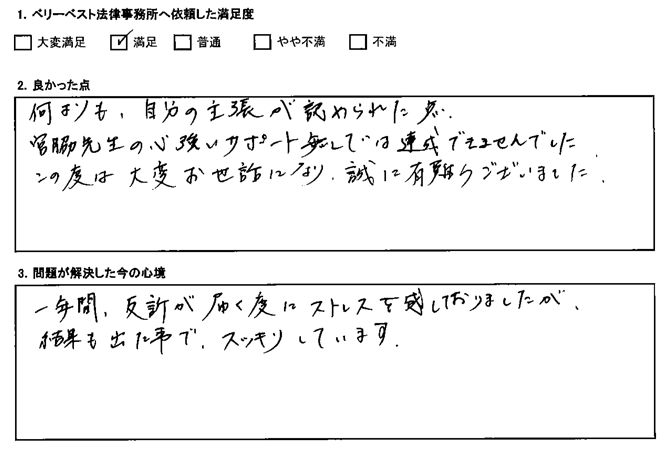 1. ベリーベスト法律事務所へ依頼した満足度
□ 大変満足 ☑ 満足 □ 普通 □ やや不満 □ 不満
2. 良かった点
何よりも、自分の主張が認められた点.
宮脇先生の心強いサポート無しでは達成できませんでした
この度は大変お世話になり、誠に有難うございました.
3. 問題が解決した今の心境
一年間、反訴が届く度にストレスを感じておりましたが、
結果も出た事で、スッキリしています.